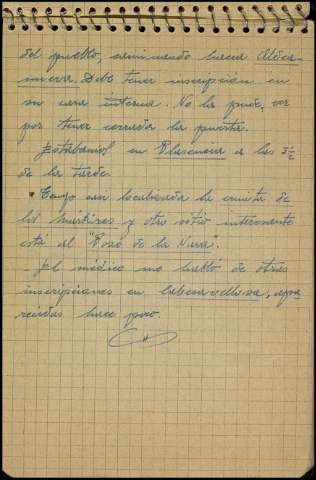 del pueblo, caminando hacia Aldea-
nueva. Debe tener inscripción en
su cara interna. No la pude, ver
por tener cerrada la puerta.
Estabamos en Plasencia a las 5½
de la tarde.
Tengo sin localizada la ermita de
los Martires y otro sitio interesante
está al "Pozo de la Nieve".
- El médico me habló de otras
inscripciones en Cabezavellosa, apa
recidas hace poco.